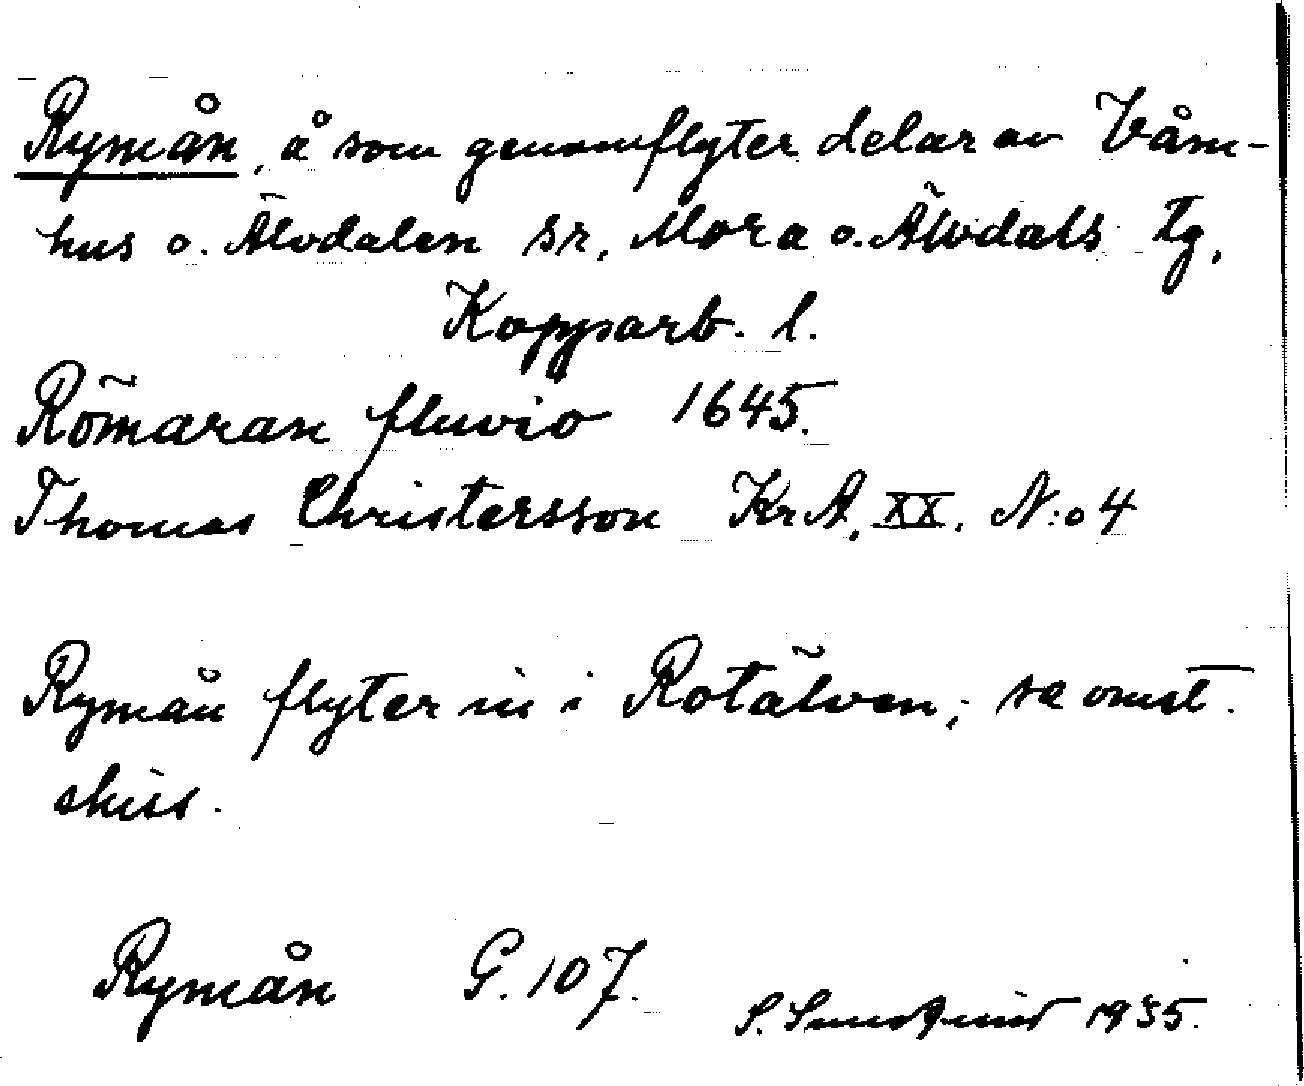 Rymån, å som genomflyter delar av Våm-
hus o. Älvdalen sr, Mora o. Älvdals tg,
Kopparb. l.
Römaran fluvio 1645.
Thomas Christersson KrA, XX. N:o 4
Rymån flyter in i Rotälven; se omst.
skiss.
Rymån G. 107.
S. Sundqvist 1935.